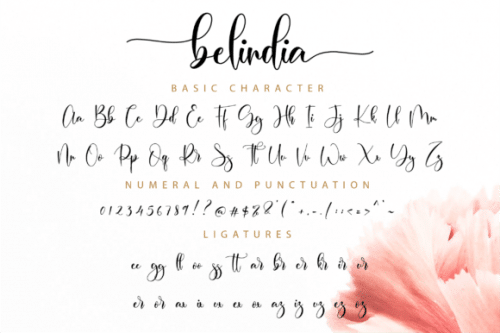 belindia
BASIC CHARACTER
Aa Bb Cc Dd Ee Ff Gg Hh Ii Jj Kk Ll Mm
Nn Oo Pp Qq Rr Ss Tt Uu Vv Ww Xx Yy Zz
NUMERAL AND PUNCTUATION
LIGATURES
ee gg ll oo ss tt ar br cr er ir kr ur
er or au iu eu ou az iz yz ez oz